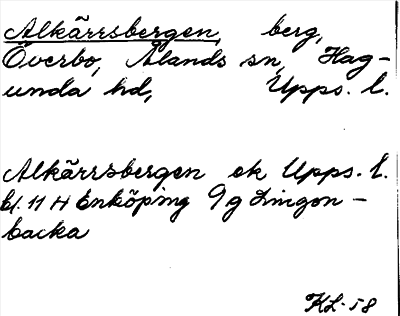 Alkärrsbergen, berg,
Överbo, Ålands sn, Hag-
unda hd, Upps. l.
Alkärrsbergen ek Upps. l.
bl. 11 H Enköping 9g Lingon-
backa
KL-58